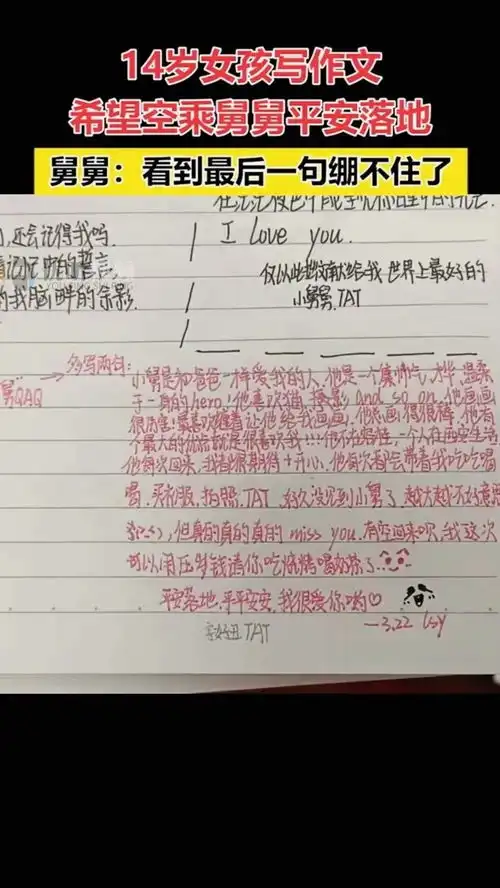 14岁女孩写作文
希望空乘舅舅平安落地
舅舅：看到最后一句绷不住了
,还会记得我吗.
I love you.
仅以此拙文献给我世界上最好的
小舅舅.TAT
舅QAQ
多写两句:
小舅是和爸爸一样爱我的人,他是一个集帅气,才华,温柔
于一身的hero!他喜欢猫,摄影and so on,他画画
很厉害!最喜欢缠着让他给我画画,他求画很很棒,他有
个最大的优点就是很喜欢我!!!他不太容易,一个人在西安生活
他每次回来,我都很期待+开心,他每次都会带着我吃吃喝
喝.买衣服,拍照.TAT.好久没见到小舅了,越大越不好意思
,但真的真的真的miss you.有空回来呗,我这次
可以用压岁钱请你吃烧烤喝奶茶了
平安落地,平平安安,我很爱你哟♡
—3.22 lsy
字好丑TAT